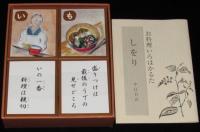 い
も
いの一番
料理は親切
盛りつけは
最後のうでの
見せどころ
お料理いろはかるた
しをり